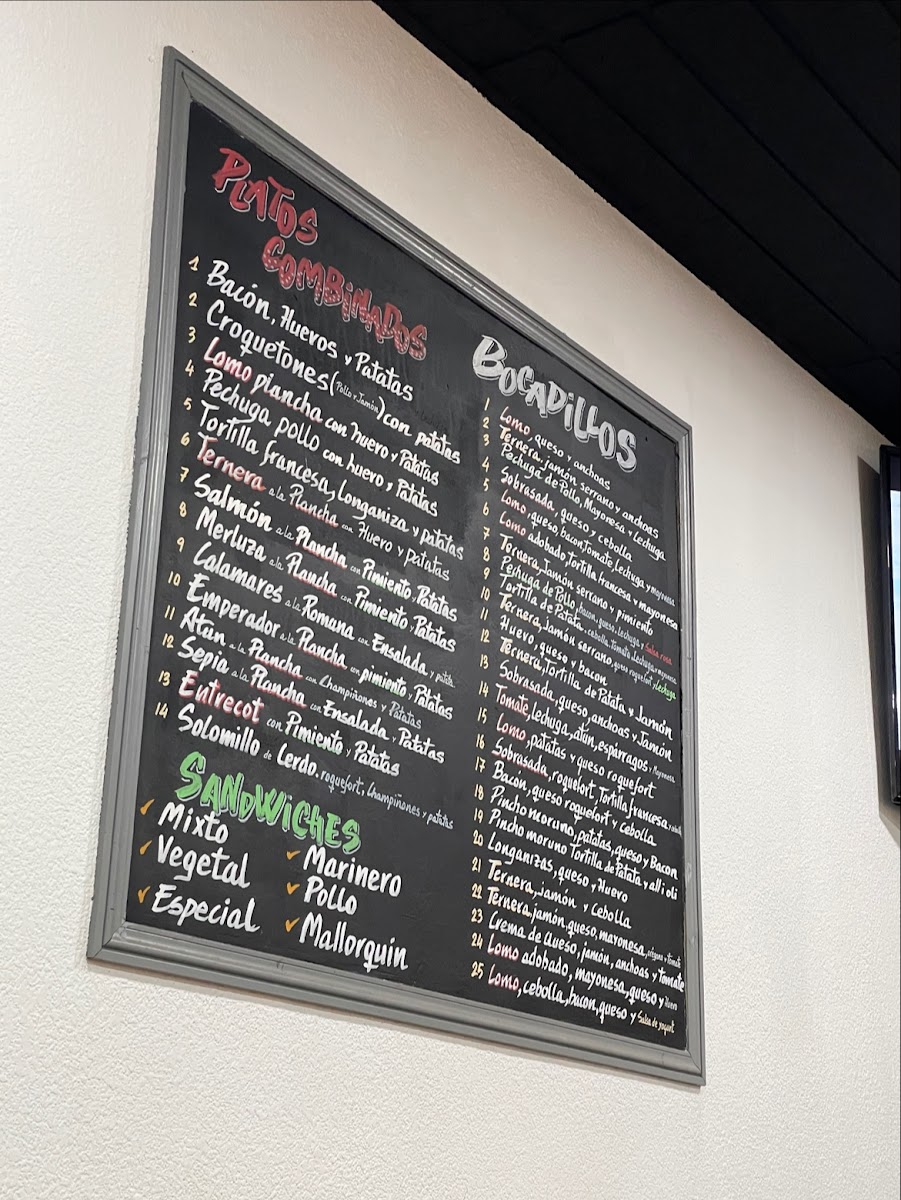 PLATOS
COMBINADOS
1 Bacón, Huevos y Patatas
2 Croquetones (Pollo y Jamón) con patatas
3 Lomo plancha con huevo y Patatas
4 Pechuga pollo con huevo y Patatas
5 Tortilla francesa, longaniza y patatas
6 Ternera a la Plancha con Huevo y Patatas
7 Salmón a la Plancha con Pimiento y Patatas
8 Merluza a la Plancha con Pimiento y Patatas
9 Calamares a la Romana con Ensalada y patata
10 Emperador a la Plancha con pimiento y Patatas
11 Atun a la Plancha con Champiñones y Patatas
12 Sepia a la Plancha con Ensalada y Patatas
13 Entrecot con Pimiento y Patatas
14 Solomillo de Lerdo, roquefort, Champiñones y patatas
SANDWICHES
Mixto
Vegetal
Especial
Marinero
Pollo
Mallorquin
BOCADILLOS
1 Lomo, queso y anchoas
2 Ternera, jamón serrano y anchoas
3 Pechuga de Pollo, Mayonesa y Lechuga
4 Sobrasada, queso y cebolla
5 Lomo, queso, bacon, tomate, lechuga y mayonesa
6 Lomo adobado, tortilla francesa y mayonesa
7 Ternera, Jamón serrano y pimiento
8 Pechuga de Pollo, bacon, queso, lechuga y Salsa rosa
9 Tortilla de Patata, cebolla, tomate, Lechuga y mayonesa
10 Ternera, jamón serrano, queso roquefort y Lechuga
11 Huevo, queso y bacon
12 Ternera, Tortilla de Patata y Jamón
13 Sobrasada, queso, anchoas y Jamón
14 Tomate, lechuga, atún, espárragos y Mayonesa
15 Lomo, patatas y queso roquefort
16 Sobrasada, roquefort, Tortilla francesa,
17 Bacon, queso roquefort y cebolla
18 Pincho moruno, patatas, queso y Bacon
19 Pincho moruno Tortilla de Patata y all i oli
20 Longanizas, queso, y Huevo
21 Ternera, jamón y Cebolla
22 Ternera, jamón, queso, mayonesa, orégano y tomate
23 Crema de Queso, jamón, anchoas y tomate
24 Lomo adobado, mayonesa, queso y Huevo
25 Lomo, cebolla, bacon, queso y Salsa de yogurt